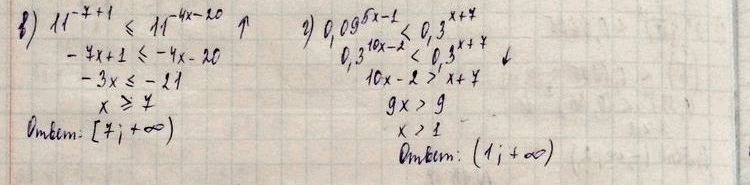 в) 11^{-7+1} ≤ 11^{-4x-20} ↑
-7x+1 ≤ -4x-20
-3x ≤ -21
x ≥ 7
Ответ: [7; +∞)
г) 0,09^{5x-1} < 0,3^{x+7}
0,3^{10x-2} < 0,3^{x+7} ↓
10x-2 > x+7
9x > 9
x > 1
Ответ: (1; +∞)